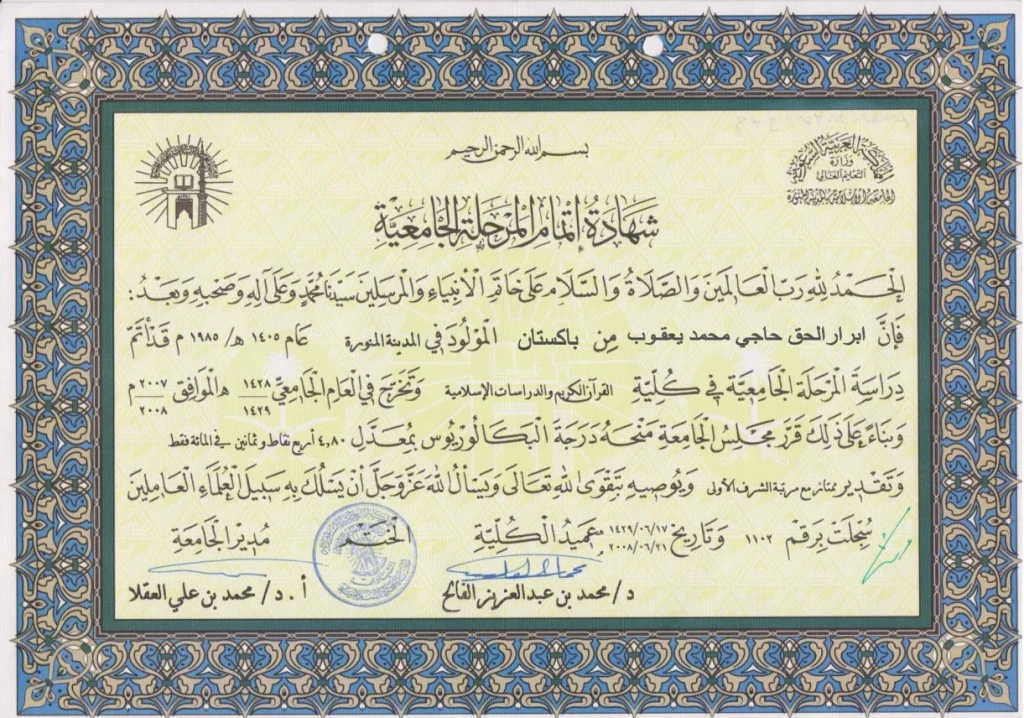 بسم الله الرحمن الرحيم
المملكة العربية السعودية
وزارة
التعليم العالي
الجامعة الإسلامية بالمدينة المنورة
شَهَادَةُ إتْمَامِ المَرْحَلَةِ الجَامِعيَّة
الحَمْدُ للهِ رَبِّ العَالَمِينَ وَالصَّلَاةُ وَالسَّلَامُ عَلَى خَاتَمِ الأَنْبِيَاءِ وَالمُرسَلِينَ سَيِّدِنَا مُحَمَّدٍ وَعَلَى آلِهِ وَصَحْبِهِ وَبَعْدُ :
فَإِنَّ ابرار الحق حاجي محمد يعقوب مِن باكستان المَوْلُودَ في المدينة المنورة عَام ١٤٠٥ هـ/ ١٩٨٥ م قَدْ أَتَمَّ
دِرَاسَةَ المَرْحَلَةِ الجَامِعيَّةِ فِي كُلِّيَّةِ القرآن الكريم والدراسات الإسلامية وَتَخَرَّجَ في العَامِ الجَامِعيِّ ١٤٢٨ / ١٤٢٩ هـ المُوَافِقِ ٢٠٠٧ / ٢٠٠٨ م
وَبِنَاءً عَلَى ذَلِكَ قَرَّرَ مَجْلِسُ الجَامِعَةِ مَنْحَهُ دَرَجَةَ البَكَالُورْيُوس بِمُعَدَّلِ ٤,٨٠ أربع نقاط وثمانين في المائة فقط
وَتَقْدِيرِ ممتاز مع مرتبة الشرف الأولى وَيُوصِيهِ بِتَقْوَى اللهِ تَعَالَى وَيَسْأَلُ اللهَ عَزَّ وَجَلَّ أَنْ يَسْلُكَ بِهِ سَبِيلَ العُلَمَاءِ العَامِلِينَ
سُجِّلَتْ بِرَقْم ١١٠٢ وَتَارِيخِ ١٤٢٩/٠٦/١٧ هـ ٢٠٠٨/٠٦/٢١ م عَمِيدُ الكُلِّيَّةِ الخَتْم مُدِيرُ الجَامِعَةِ
د/ محمد بن عبدالعزيز الفالح أ.د/ محمد بن علي العقلا